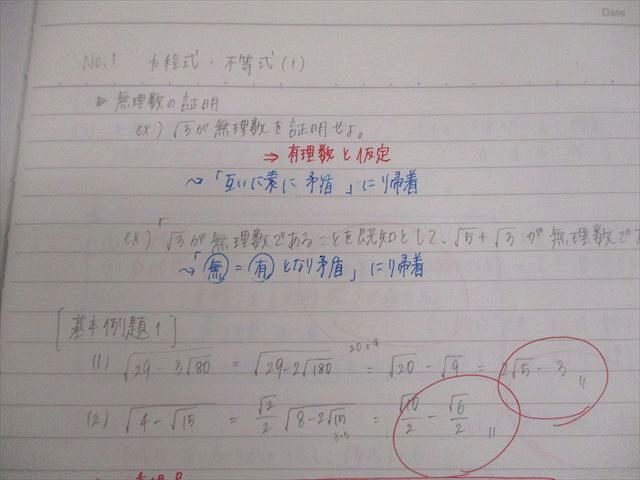 Date
No.1 方程式・不等式(1)
▶ 無理数の証明
ex) √3が無理数を証明せよ。
⇒ 有理数と仮定
〜「互いに素に矛盾」に帰着
ex)「√3が無理数であることを既知として、√5+√3 が無理数で
〜「無=有となり矛盾」に帰着
[基本例題1]
20×9
(1) √(29-3√80) = √(29-2√180) = √20-√9 = 2√5-3 〃
(2) √(4-√15) = √2/2 √(8-2√15) = √10/2 - √6/2 〃